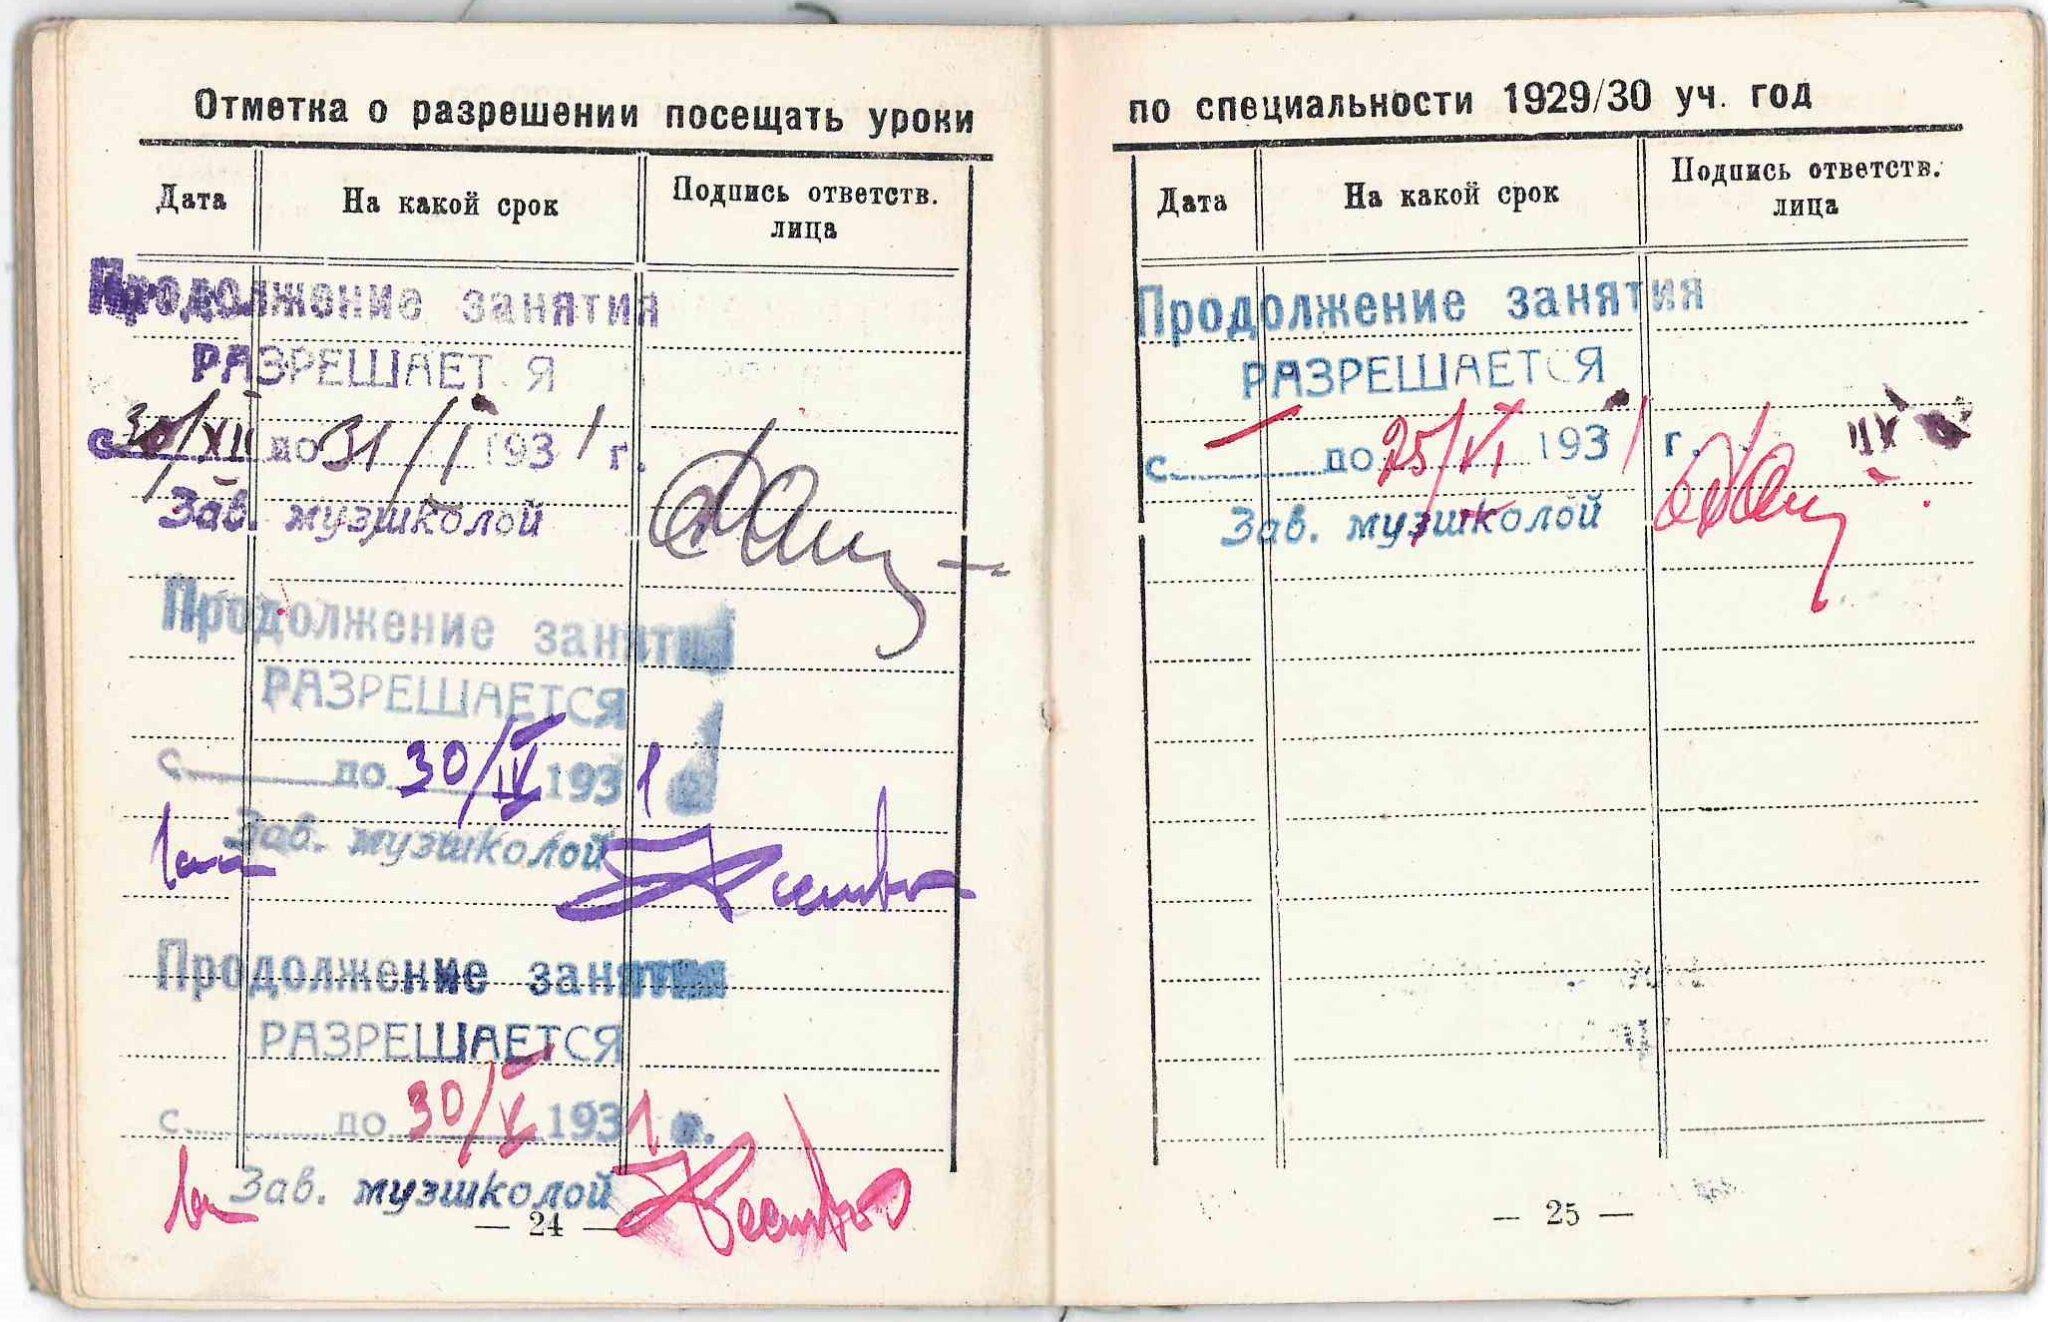 Отметка о разрешении посещать уроки
Дата
На какой срок
Подпись ответств. лица
Продолжение занятия
РАЗРЕШАЕТ Я
с 30/XII до 31/I 1931 г.
Зав. музшколой
Продолжение занятия
РАЗРЕШАЕТСЯ
с до 30/IV 1931 г.
Зав. музшколой
Продолжение занятия
РАЗРЕШАЕТСЯ
с до 30/V 1931 г.
Зав. музшколой
— 24 —
по специальности 1929/30 уч. год
Дата
На какой срок
Подпись ответств. лица
Продолжение занятия
РАЗРЕШАЕТСЯ
с — до 25/VI 1931 г.
Зав. музшколой
— 25 —